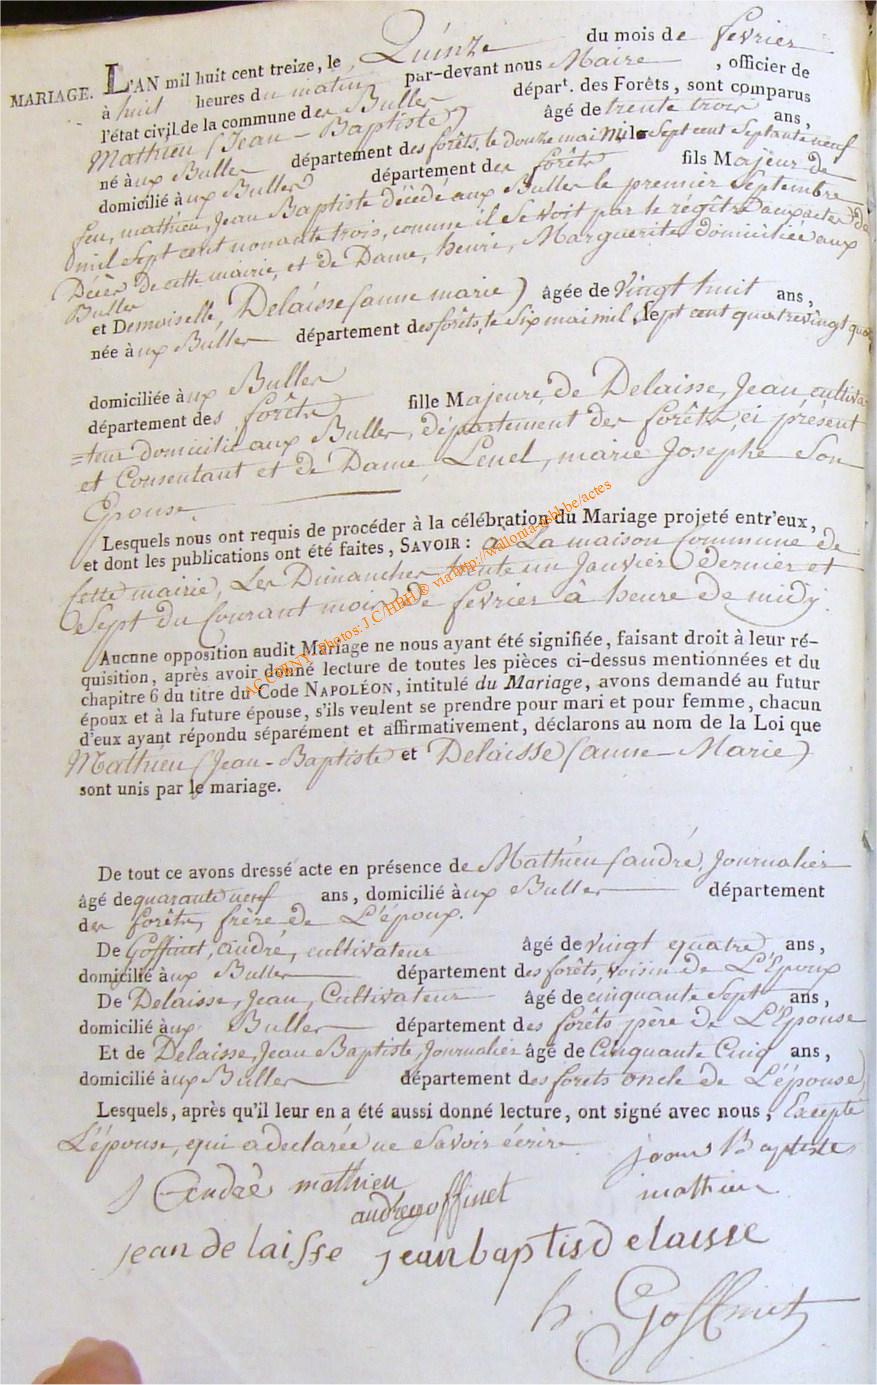 MARIAGE. L'AN mil huit cent treize, le Quinze du mois de fevrier
à huit heures du matin par-devant nous Maire, officier de
l'état civil de la commune des Bulles départ. des Forêts, sont comparus
Mathieu (Jean-Baptiste) âgé de trente trois ans,
né à ux Bulles département des forêts, le douze mai mil Sept cent Septante neuf
domicilié à ux Bulles département des forêts fils Majeur de
feu, mathieu, Jean Baptiste décédé aux Bulles le premier Septembre
mil Sept cent nonante trois, comme il se voit par le régître aux actes de
Décès de cette mairie, et de Dame, henri, Marguerite domiciliée aux
Bulles
et Demoiselle, Delaisse (anne marie) âgée de Vingt huit ans,
née à ux Bulles département des forêts, le Six mai mil Sept cent quatrevingt
domiciliée à ux Bulles
département des forêts fille Majeure, de Delaisse, Jean, cultiva-
=teur domicilié aux Bulles, département des forêts, ci présent
et Consentant et de Dame, Lenel, marie Josephe Son
Epouse.
Lesquels nous ont requis de procéder à la célébration du Mariage projeté entr'eux,
et dont les publications ont été faites, SAVOIR: à La maison Commune de
Cette mairie, Les Dimanches trente un Janvier dernier et
Sept du Courant mois de fevrier à heure de midy.
AG CORNY Photos: J.C/HBH © via http://wallonia-asbl.be/actes
Aucune opposition audit Mariage ne nous ayant été signifiée, faisant droit à leur ré-
quisition, après avoir donné lecture de toutes les pièces ci-dessus mentionnées et du
chapitre 6 du titre du Code NAPOLÉON, intitulé du Mariage, avons demandé au futur
époux et à la future épouse, s'ils veulent se prendre pour mari et pour femme, chacun
d'eux ayant répondu séparément et affirmativement, déclarons au nom de la Loi que
Mathieu (Jean-Baptiste et Delaisse (anne-Marie)
sont unis par le mariage.
De tout ce avons dressé acte en présence de Mathieu (andré, Journalier
âgé de quarante neuf ans, domicilié à ux Bulles département
des forêts, frère de L'époux.
De Goffinet, andré, cultivateur âgé de vingt quatre ans,
domicilié à ux Bulles département des forêts, voisin de L'Epoux
De Delaisse, Jean, Cultivateur âgé de cinquante Sept ans,
domicilié à ux Bulles département des forêts père de L'Epouse
Et de Delaisse, Jean Baptiste, Journalier âgé de Cinquante Cinq ans,
domicilié à ux Bulles département des forets oncle de L'épouse
Lesquels, après qu'il leur en a été aussi donné lecture, ont signé avec nous, Excepté
L'épouse, qui a declarée ne Savoir écrire.
jean Baptiste
André mathieu mathieu
andre goffinet
jean de laisse jean baptis Delaisse
h. Goffinet